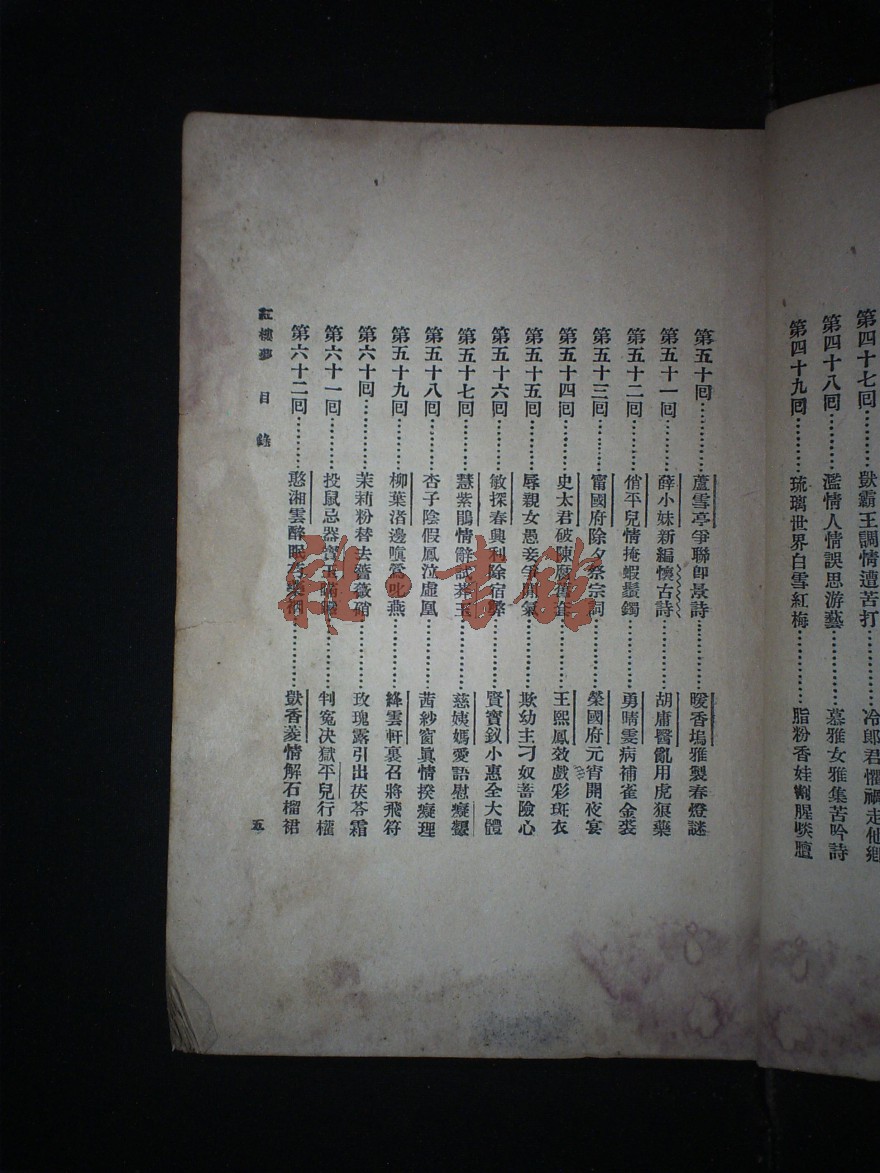 第四十七回………獃霸王調情遭苦打………冷郎君懼禍走他鄉
第四十八回………濫情人情誤思游藝………慕雅女雅集苦吟詩
第四十九回………琉璃世界白雪紅梅………脂粉香娃割腥啖膻
第五十回………蘆雪亭爭聯卽景詩………暖香塢雅製春燈謎
第五十一回………薛小妹新編懷古詩………胡庸醫亂用虎狼藥
第五十二回………俏平兒情掩蝦鬚鐲………勇晴雯病補雀金裘
第五十三回………甯國府除夕祭宗祠………榮國府元宵開夜宴
第五十四回………史太君破陳腐舊套………王熙鳳效戲彩斑衣
第五十五回………辱親女愚妾爭閒氣………欺幼主刁奴蓄險心
第五十六回………敏探春興利除宿弊………賢寶釵小惠全大體
第五十七回………慧紫鵑情辭試莽玉………慈姨媽愛語慰癡顰
第五十八回………杏子陰假鳳泣虛凰………茜紗窗眞情揆癡理
第五十九回………柳葉渚邊嗔鶯叱燕………絳雲軒裏召將飛符
第六十回………茉莉粉替去薔薇硝………玫瑰露引出茯苓霜
第六十一回………投鼠忌器寶玉瞞贓………判寃決獄平兒行權
第六十二回………憨湘雲醉眠芍藥裀………獃香菱情解石榴裙
紅樓夢 目錄 五
雜·書館